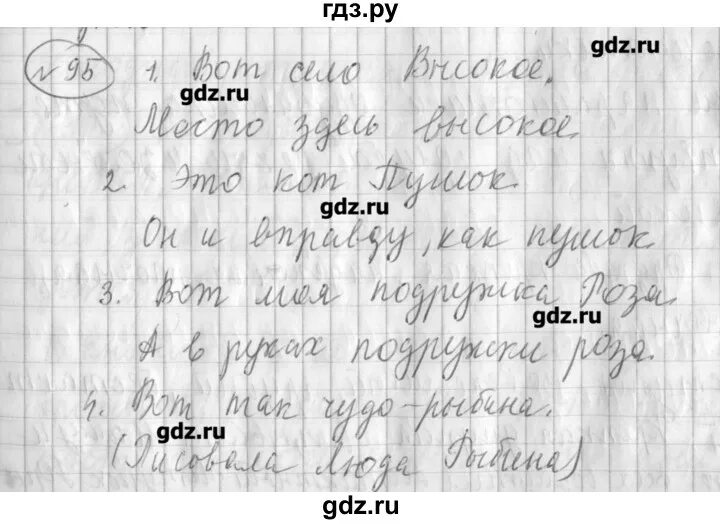 гдз.ру
№ 95 1. Вот село Высокое.
gdz.ru
gdz.ru
Место здесь высокое.
2. Это кот Пушок.
gdz.ru
Он и вправду, как пушок.
3. Вот моя подружка Роза.
gdz.ru
А в руках подружки роза.
4. Вот так чудо-рыбина.
gdz.ru
(Рисовала Люда Рыбина)
gdz.ru